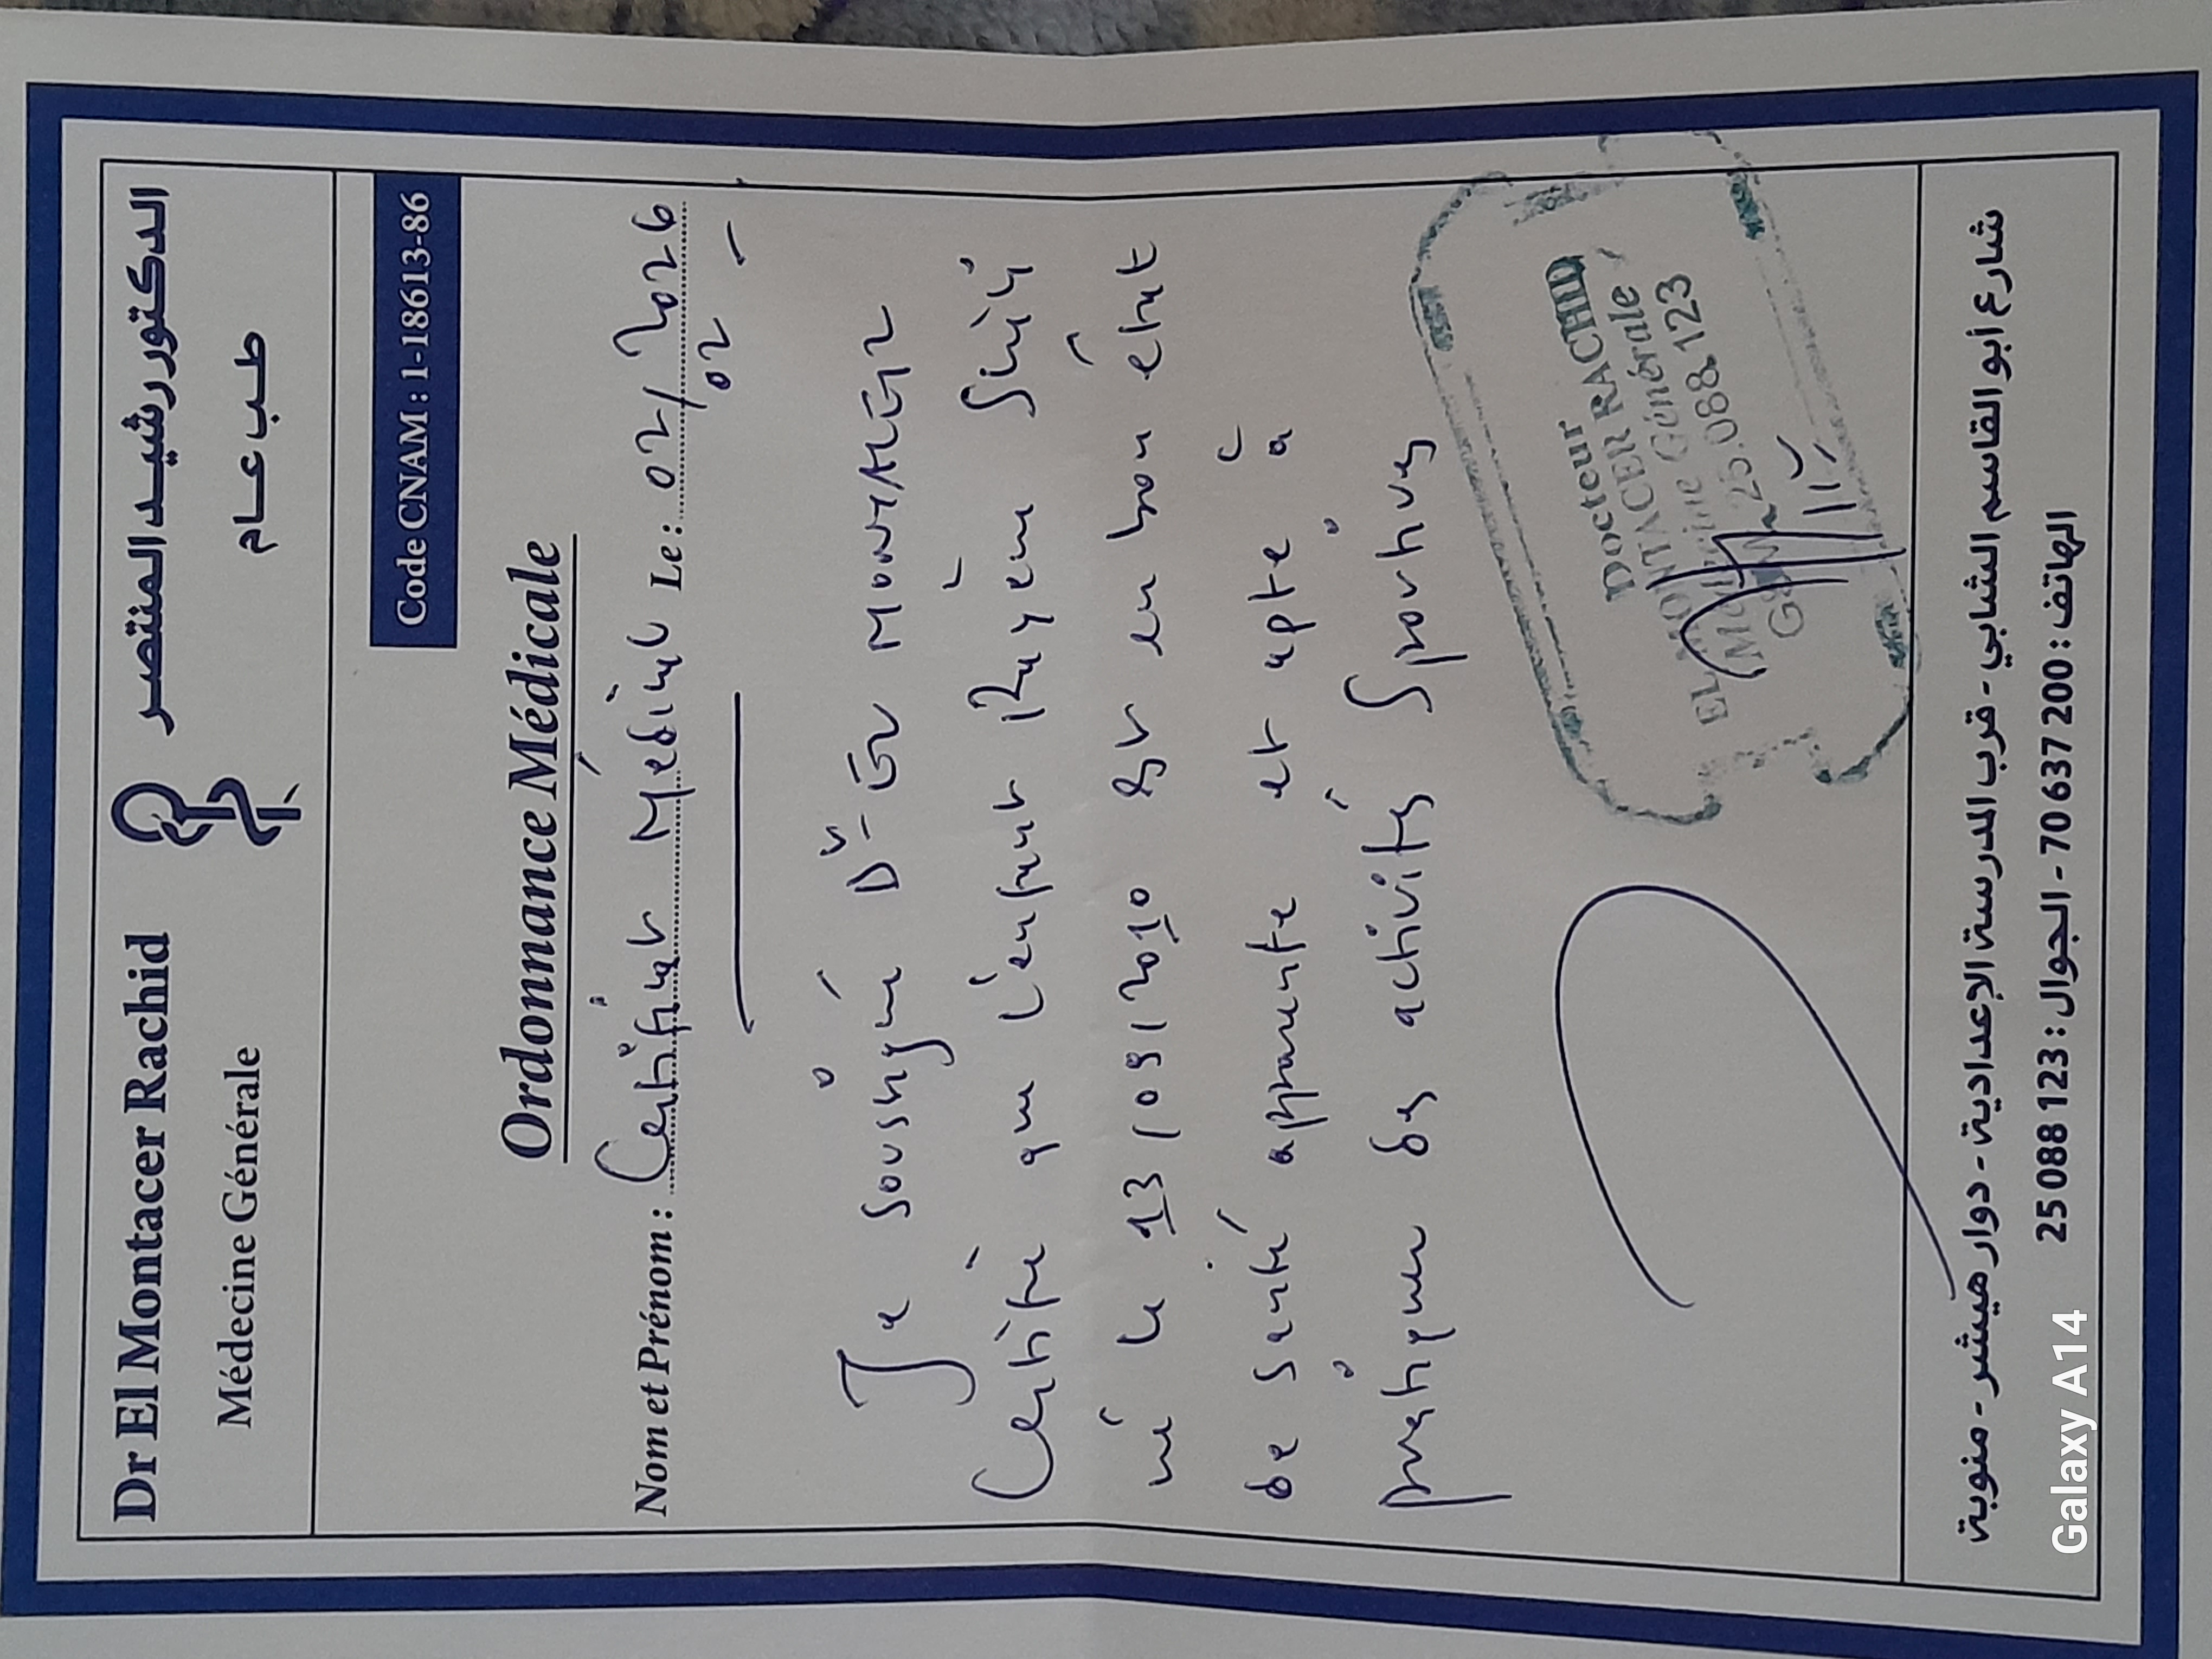 Dr El Montacer Rachid
Médecine Générale
الدكتور رشيد المنتصر
طب عام
Code CNAM : 1-18613-86
Ordonnance Médicale
Nom et Prénom : Certificat Médical Le : 02/02/2026
Je soussigné Dr - El MONTACER
Certifie que l'enfant Rayen
né le 13/09/2010 est en bon état
de santé apparente et apte à
pratiquer des activités sportives
Docteur
EL MONTACER RACHID
Médecine Générale
GSM 25.088.123
شارع أبو القاسم الشابي - قرب المدرسة الإعدادية - دوار هيشر - منوبة
الهاتف : 200 637 70 - الجوال : 123 088 25
Galaxy A14